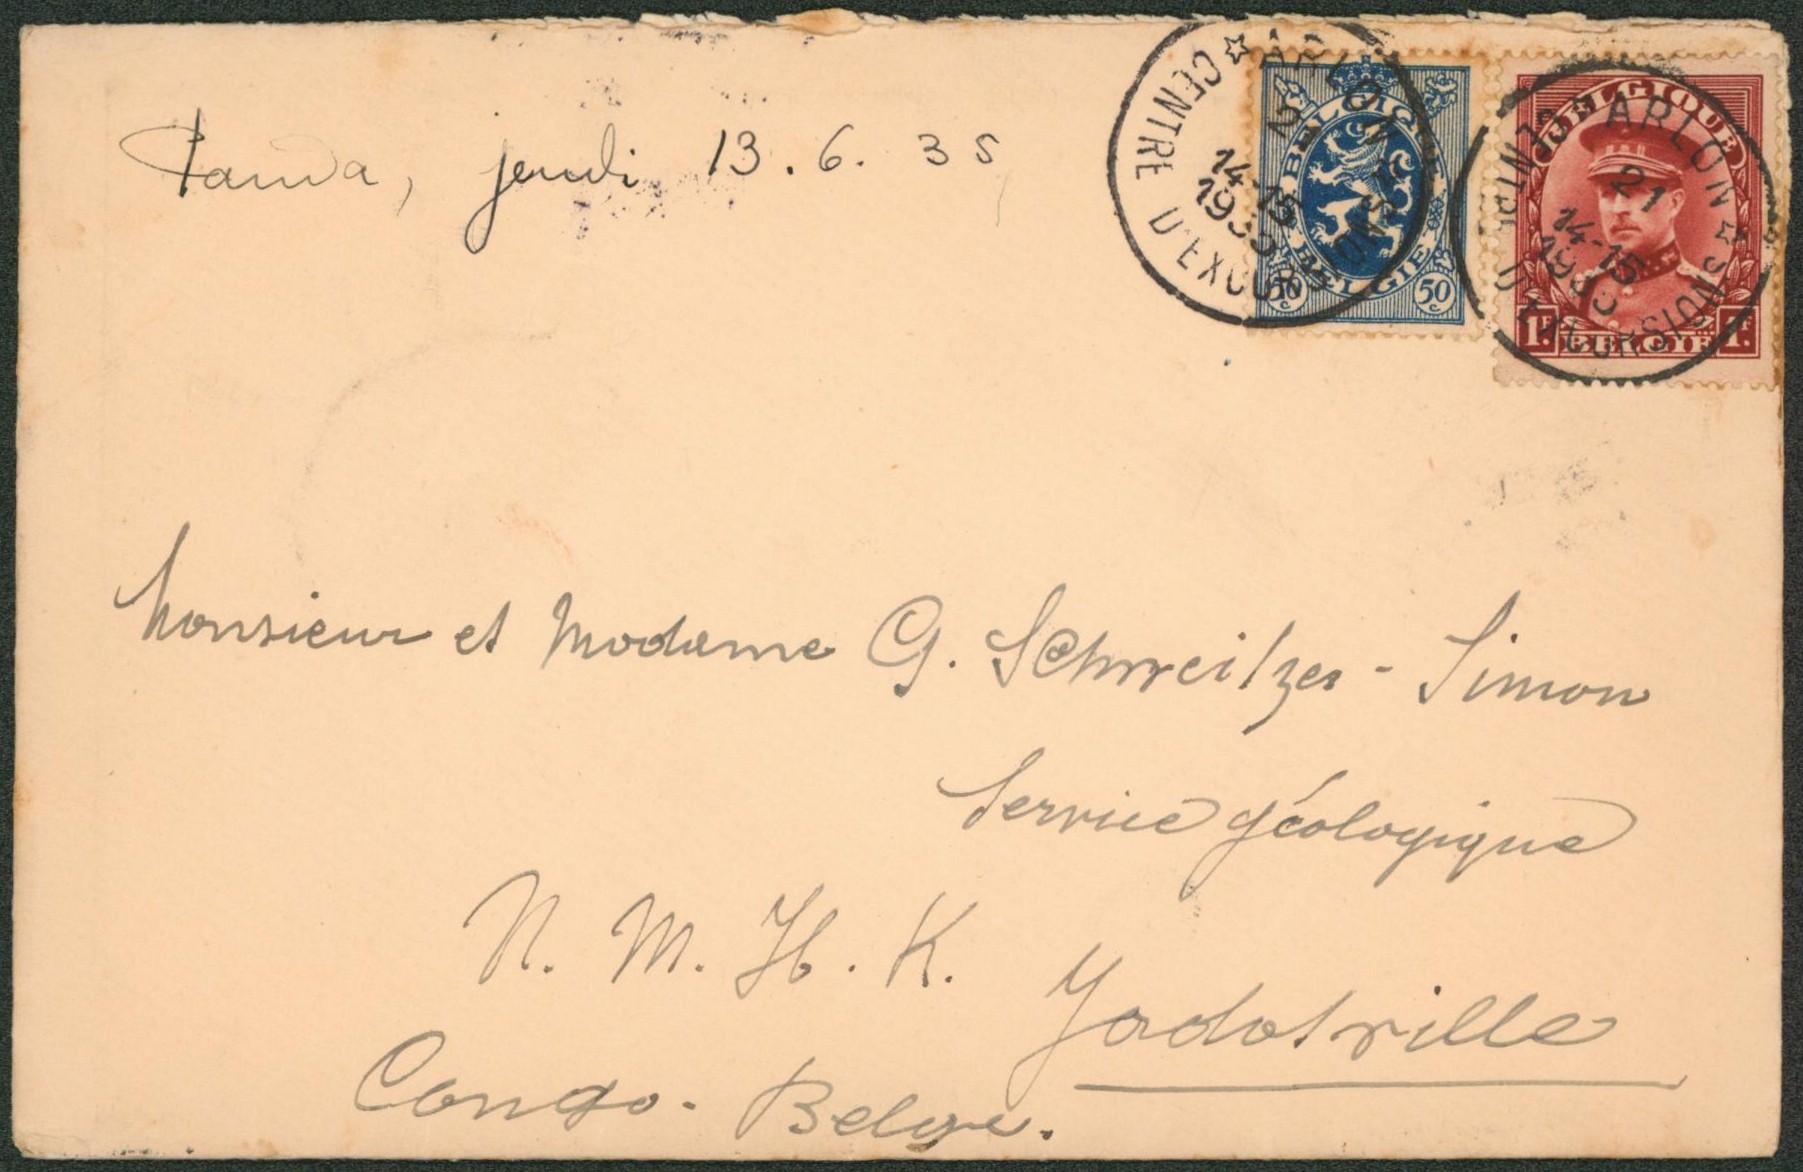 Panda, jeudi 13.6.35
ARLON
21
14-15
1935
CENTRE D'EXCURSIONS
BELGIQUE
BELGIË
50c 50c
ARLON
21
14-15
1935
CENTRE D'EXCURSIONS
BELGIQUE
BELGIË
1F. 1F.
Monsieur et Madame G. Schweitzer - Simon
Service géologique
N. M. H. K. Jadotville
Congo - Belge.